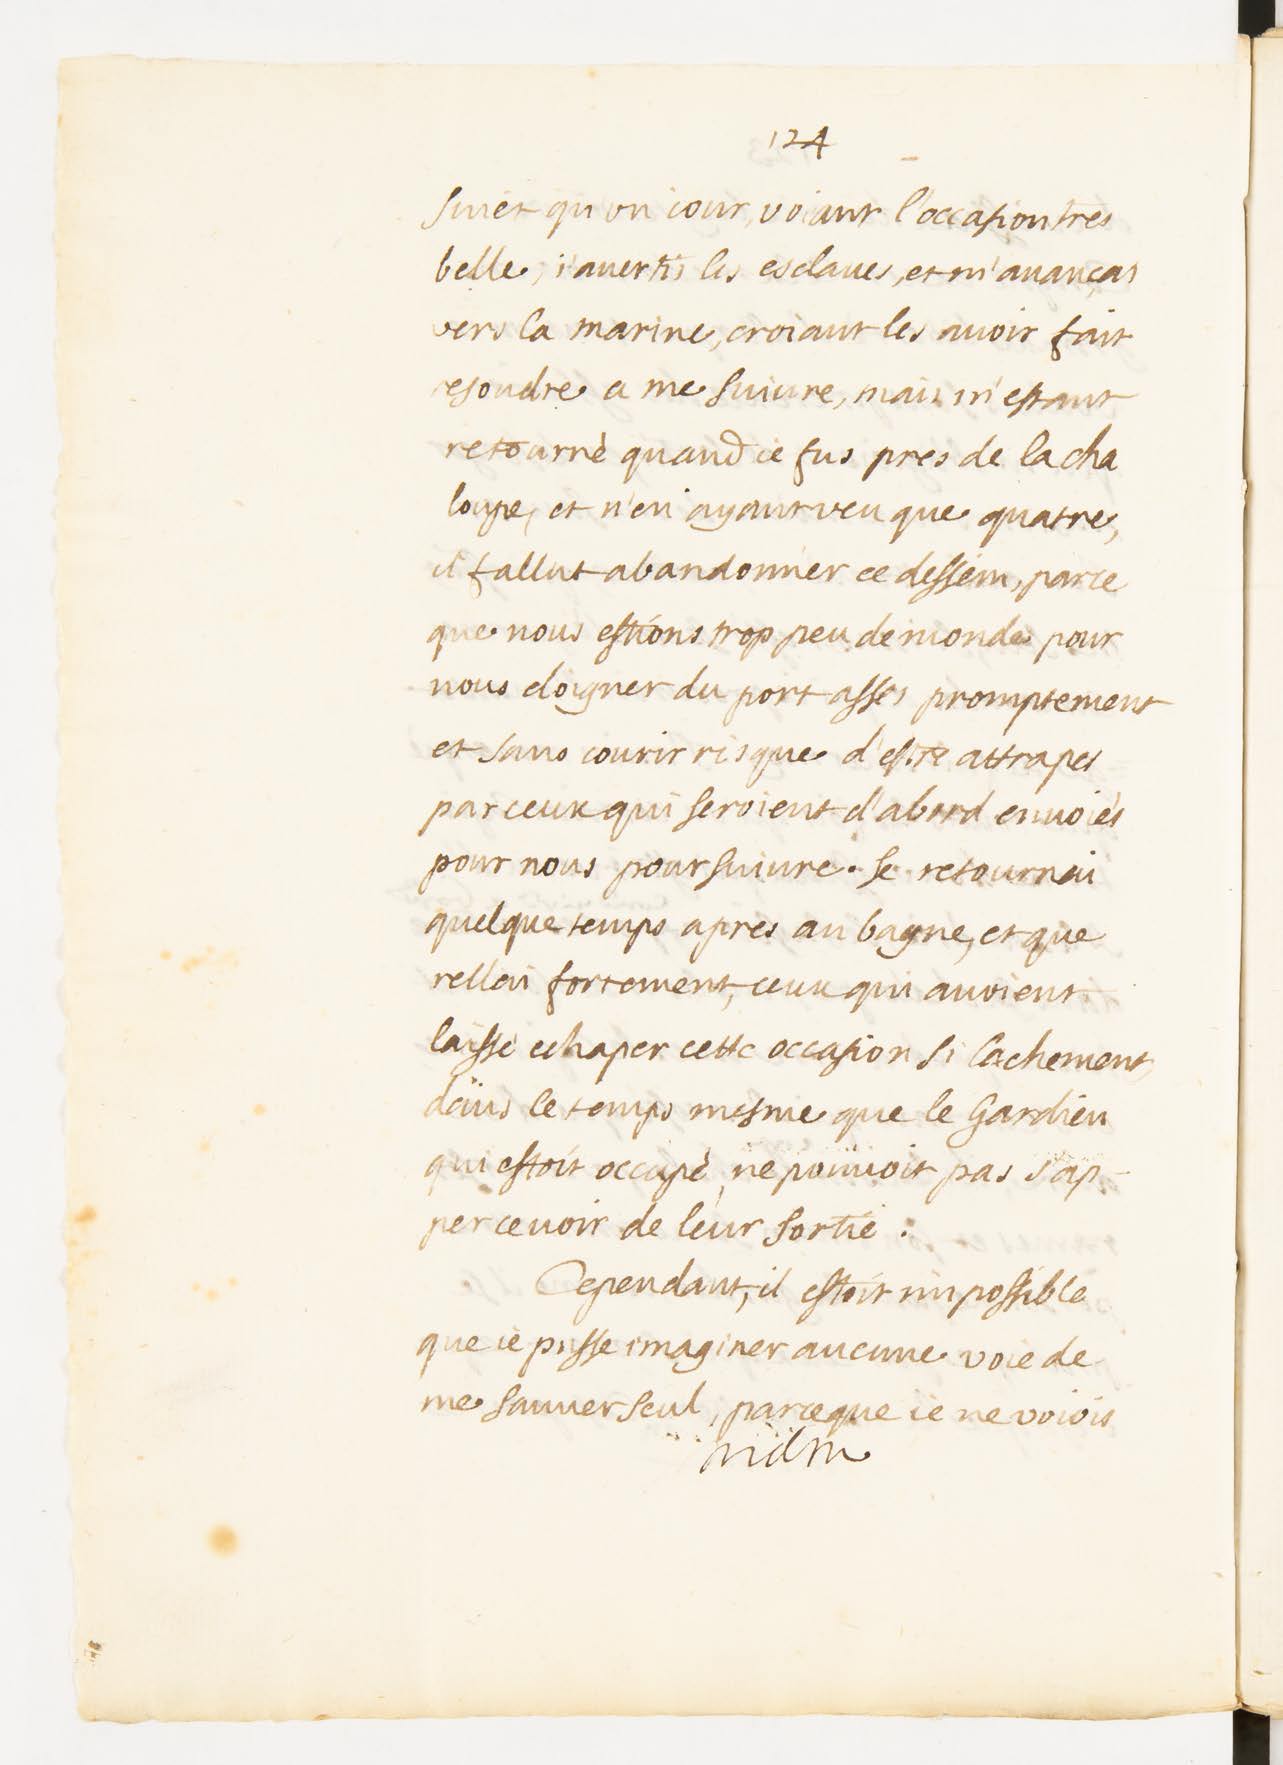 124
suiet qu'un iour, voiant l'occasion tres
belle, i'auertis les esclaues, et m'auançai
vers la marine, croiant les auoir fait
resoudre a me suiure, mais m'estant
retourné quand ie fus pres de la cha
loupe, et n'en ayant veu que quatre,
il fallut abandonner ce dessein, parce
que nous estions trop peu de monde pour
nous eloigner du port assés promptement
et sans courir risque d'estre attrapés
par ceux qui seroient d'abord enuoiés
pour nous poursuiure. Ie retournai
quelque temps apres au bagne, et que
rellai fortement, ceux qui auoient
laissé echaper cette occasion si lachement,
dans le temps mesme que le Gardien
qui estoit occupé, ne pouuoit pas s'ap-
perceuoir de leur sortie.
Cependant, il estoit impossible
que ie pusse imaginer aucune voie de
me sauuer seul, parceque ie ne voiois